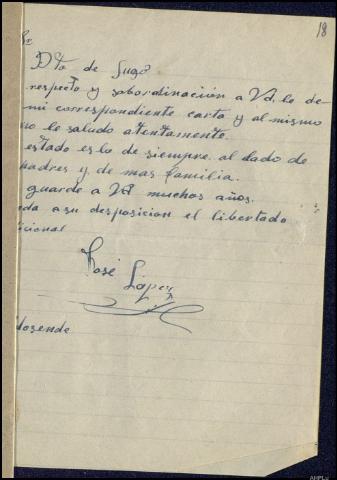 18
Sr
Dto de Lugo
respeto y sobordinación a Vd, le de-
mi correspondiente carta y al mismo
le saludo atentamente.
estado es lo de siempre al lado de
padres y de mas familia.
guarde a Vd muchos años.
eda a su desposicion el libertado
icional
José
López
dosende